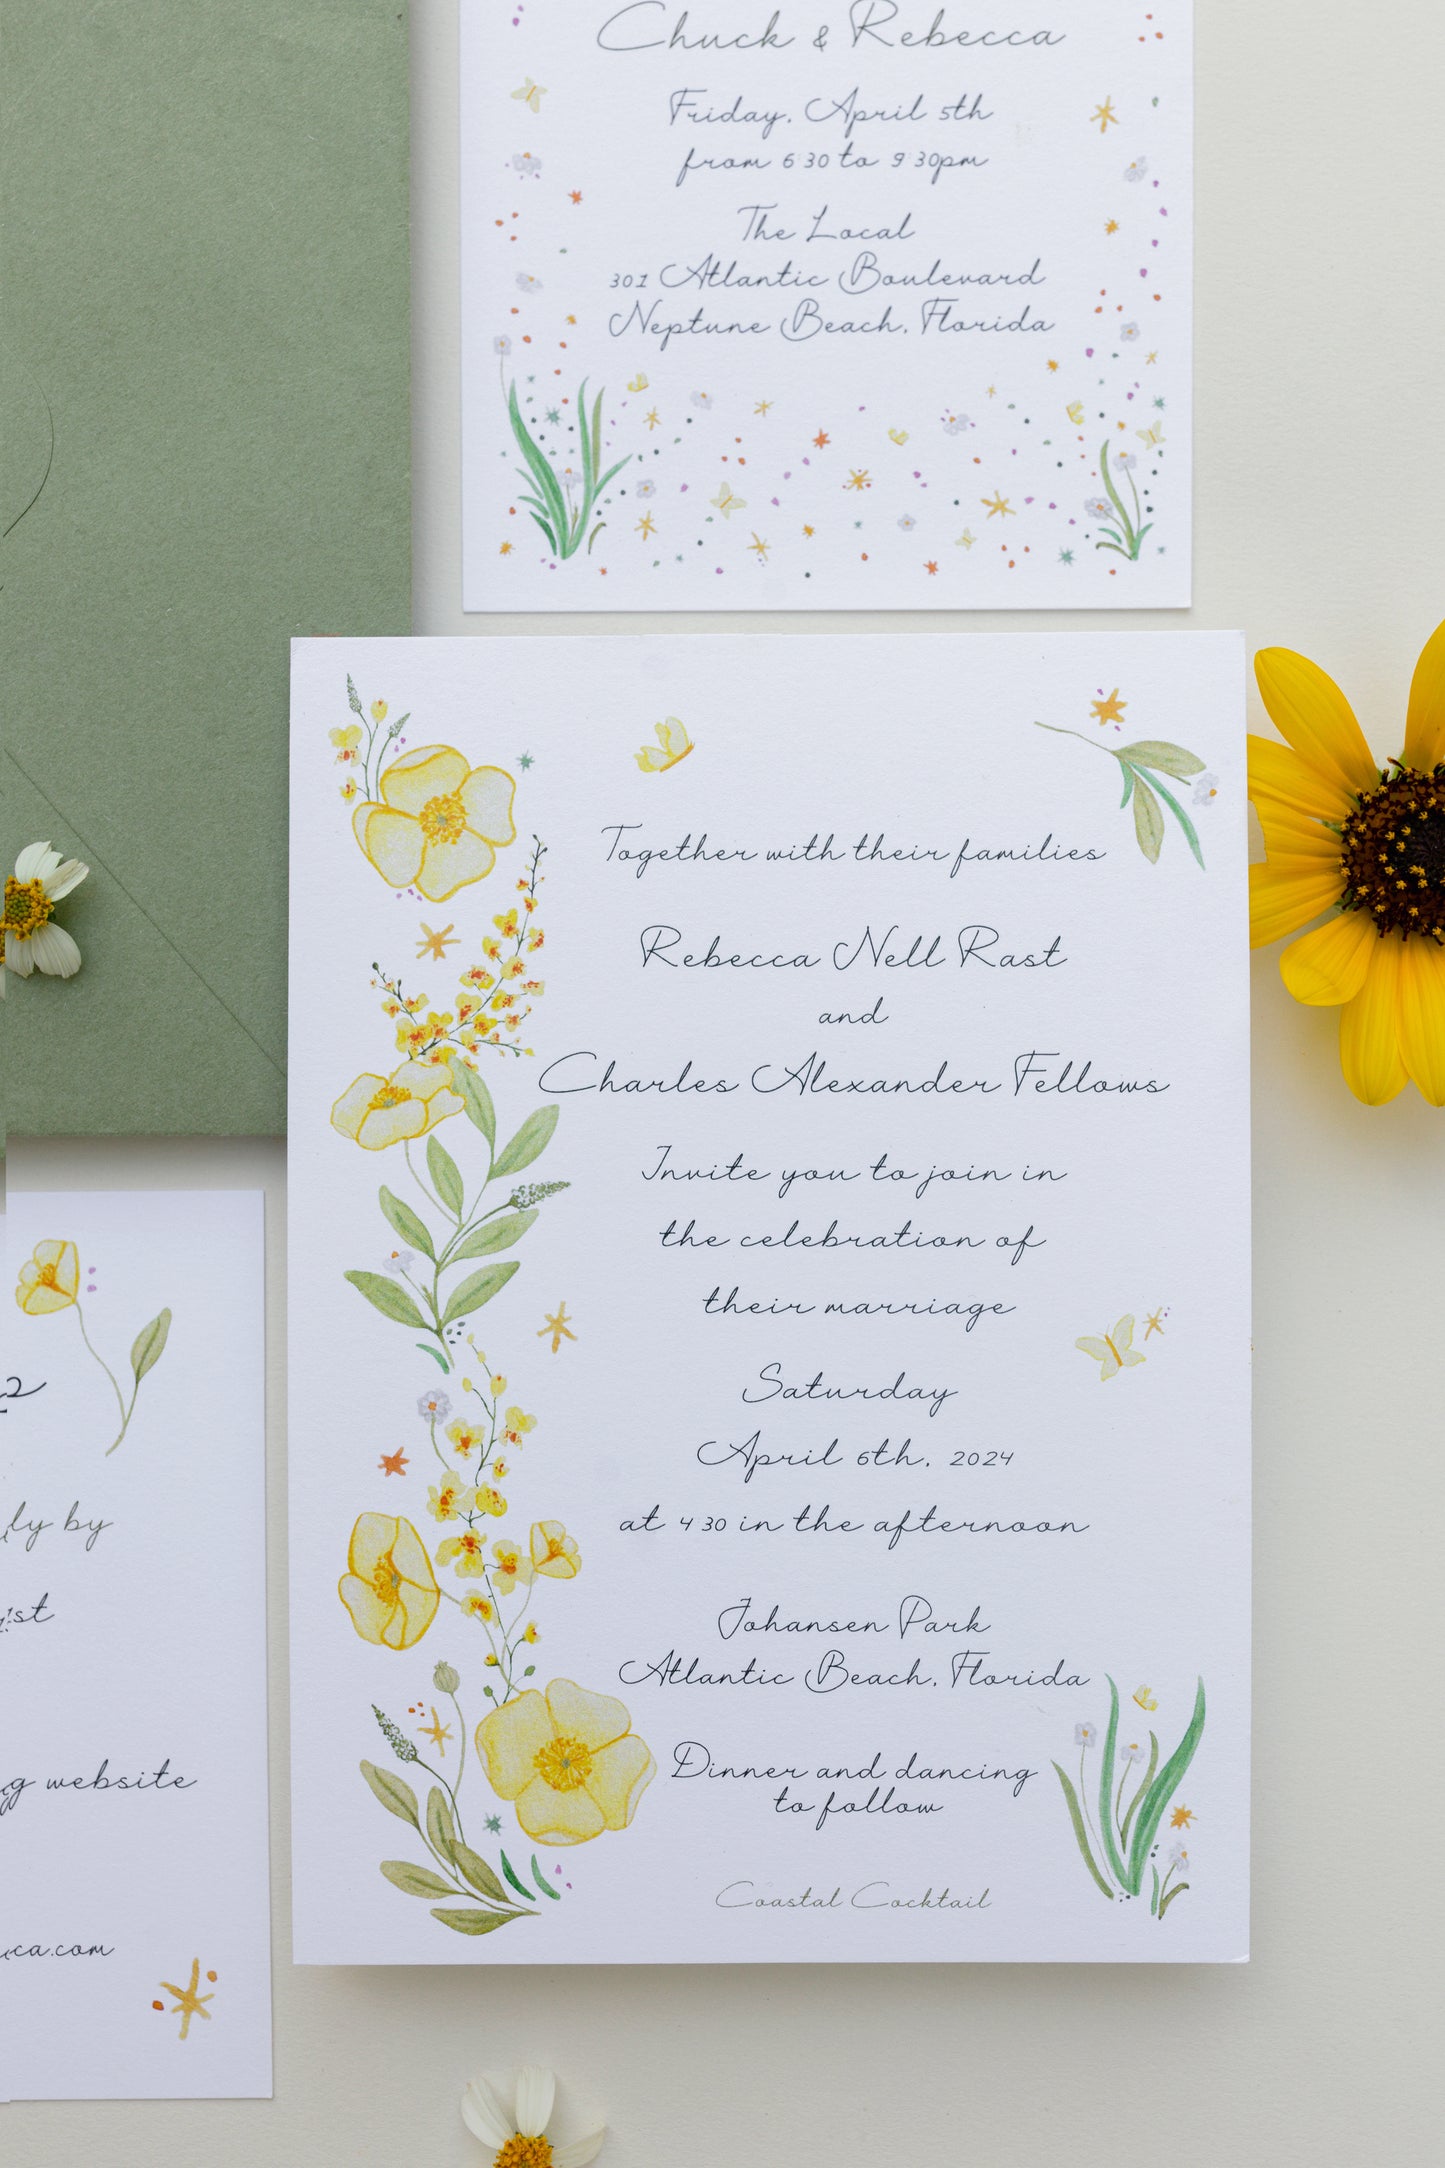 Chuck & Rebecca
Friday, April 5th
from 6:30 to 9:30pm
The Local
301 Atlantic Boulevard
Neptune Beach, Florida
Together with their families
Rebecca Nell Rast
and
Charles Alexander Fellows
Invite you to join in
the celebration of
their marriage
Saturday
April 6th, 2024
at 4:30 in the afternoon
Johansen Park
Atlantic Beach, Florida
Dinner and dancing
to follow
Coastal Cocktail
by
website